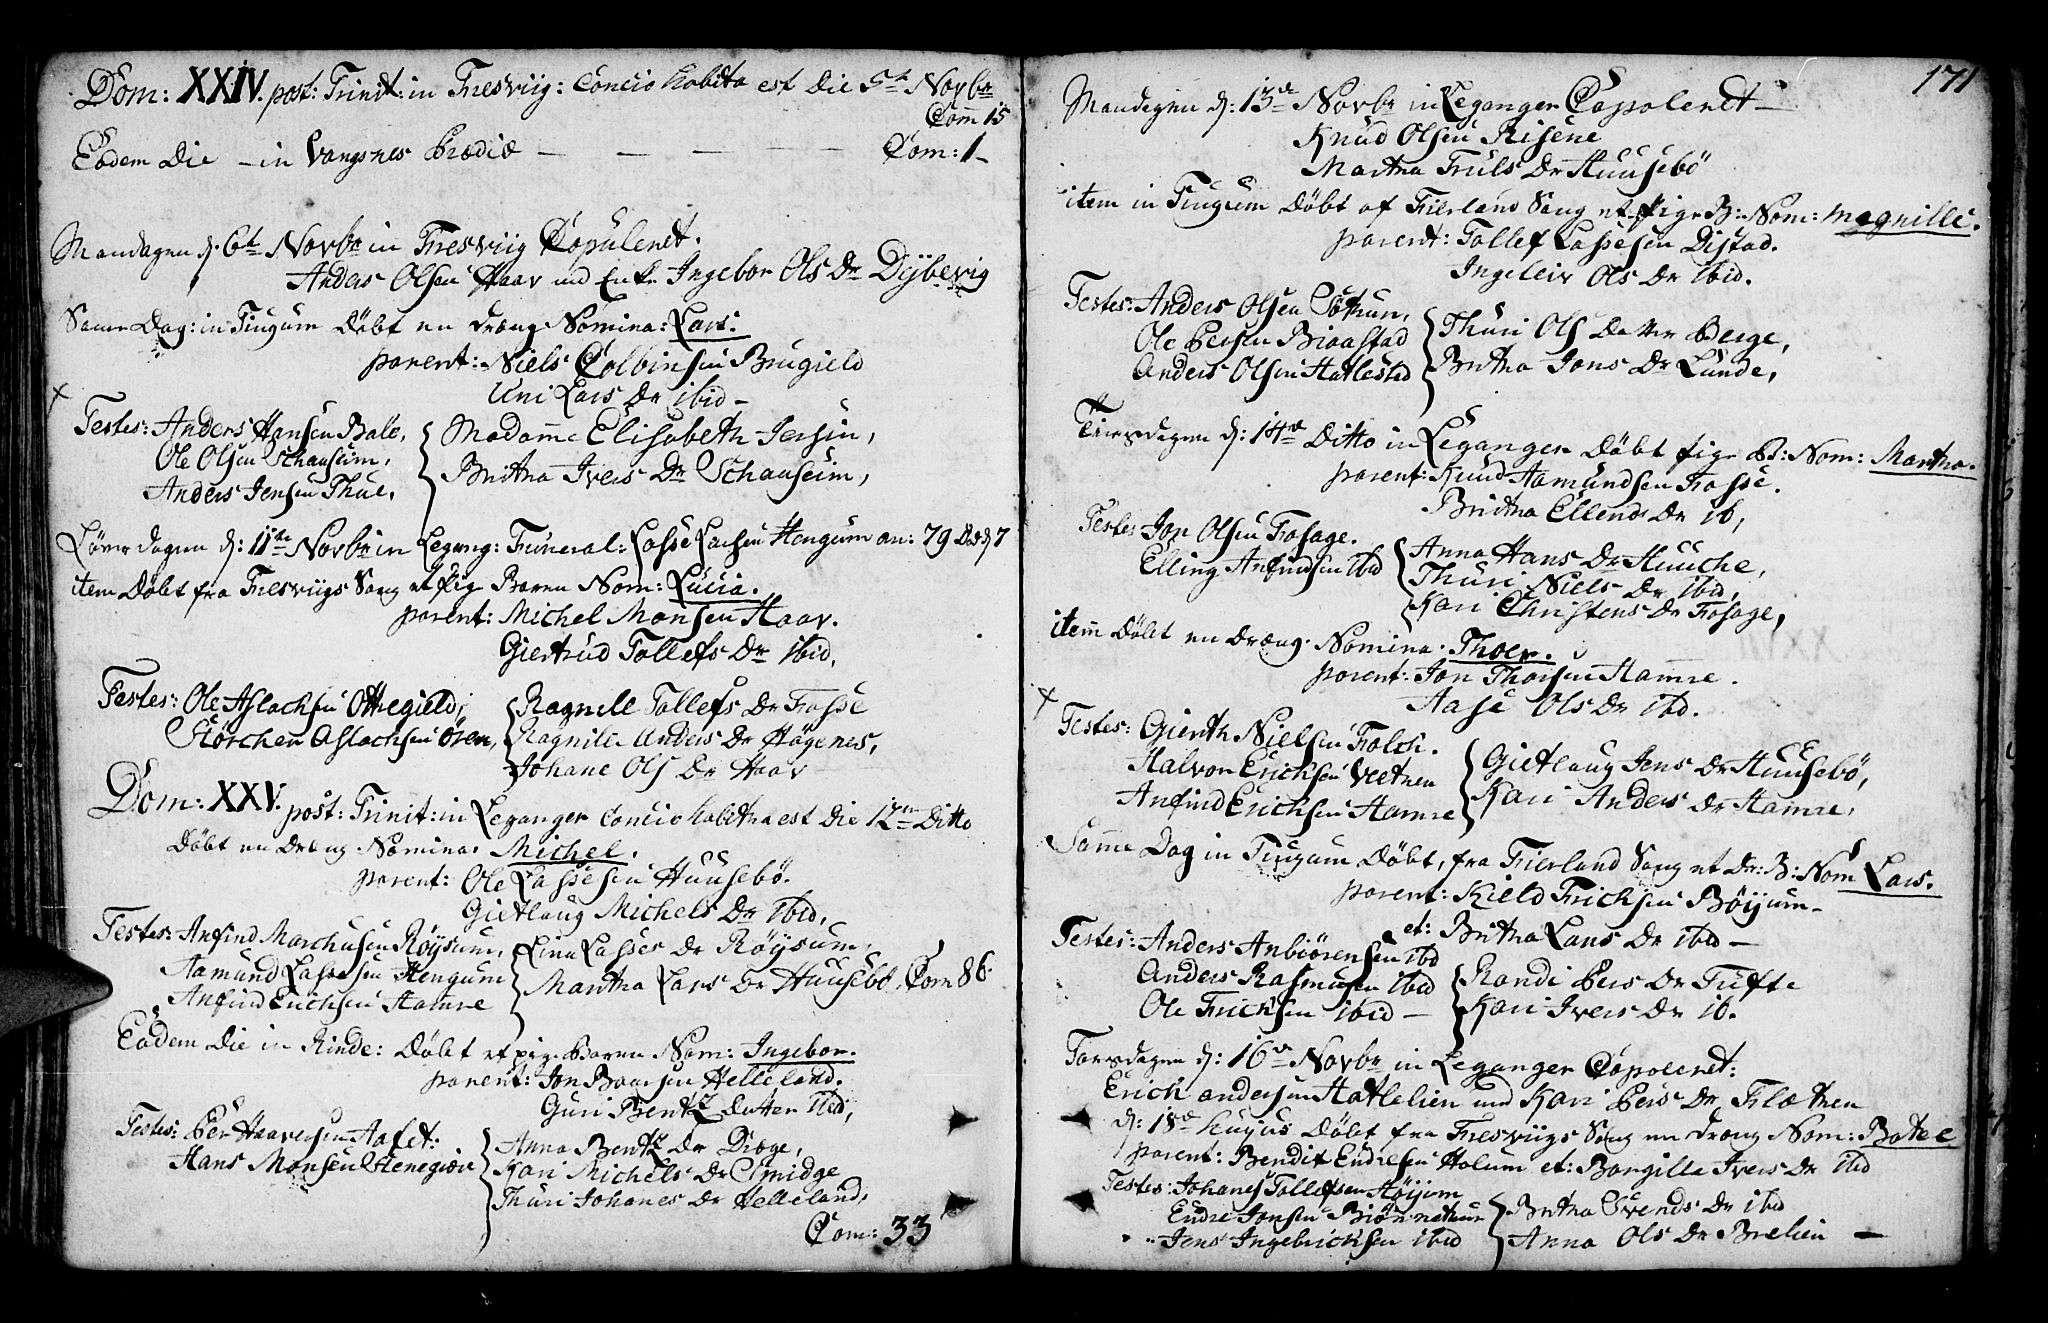 Dom: XXIV. post: Trinit: in Fresviig: Concio habita est die 5te Novbr
Com 15
Eodem Die – in Vangsnes Prædiæ – – – – – Com: 1 –
Mandagen d. 6te Novbr in Fresviig Copuleret.
Anders Olsen Haav med Enke Ingebor Ols Dr Dybevig
Same Dag: in Tiugum Døbt en dræng Nomina: Lars.
parent: Niels Colbinsen Brugield
Uni Lars Dr ibid –
Testes: Anders Hansen Bale,
Ole Olsen Schanseim,
Anders Jensen Thue,
Madame Elisabeth Jersin,
Britha Ivers Dr Schanseim,
Løverdagen d: 11te Novbr in Legang: Funeral: Lasse Larsen Hengum an: 79
item Døbt fra Fresviigs Sogn et pig Baren Nom: Lucia.
parent: Michel Monsen Haav.
Giertrud Tollefs Dr ibid.
Testes: Ole Aslachsen Ottregield,
Størchen Aslachsen Øren,
Ragnill Tollefs Dr Fosse
Ragnille Anders Dr Høgenes,
Johane Ols Dr Haav
Dom: XXV. post: Trinit: in Leganger Concio habitra est die 12te Ditto
Døbt en dræng Nomina: Michel.
parent: Ole Lassesen Huusebö.
Gietlaug Michels Dr ibid,
Testes: Anfind Marchusen Röysum,
Aamund Lassesen Hengum
Anfind Erichsen Hamre
Lina Lasses Dr Röysum,
Martha Lars Dr Huusebö, Com 86.
Eodem Die in Rinde: Døbt et pige Baren Nom: Ingebor.
parent: Jon Baarsen Helleland.
Guri Bentz datter ibid,
Testes: Per Haaversen Aafet:
Hans Monsen Stenegiær
Anna Bentz Dr Diøge,
Kari Michels Dr Smidge
Thuri Johanes Dr Helleland,
Com: 33
171
Mandagen d: 13de Novbr in Leganger Copoleret –
Knud Olsen Risene
Martha Truls Dr Huusebö
item in Tiugum Döbt af Fierland Sogn et pige B: Nom: Magnille.
parent: Tollef Lassesen Distad.
Ingeleiv Ols Dr ibid.
Testes: Anders Olsen Søtrun,
Ole Persen Bioastad
Anders Olsen Hatlestad
Thuri Ols Datter Berge,
Britha Jons Dr Lunde,
Tiirsdagen d: 14de Ditto in Leganger Döbt pige B: Nom: Martha.
parent: Knud Aamundsen Fosse.
Britha Ellends Dr ib,
Testes Jon Olsen Fosage.
Elling Anfindsen ibid
Anna Hans Dr Huuche,
Thuri Niels Dr ibid,
Kari Christens Dr Fosage,
item Döbt en dræng. Nomina. Thoer.
parent: Jon Thorsen Hamre.
Aase Ols Dr ibd.
Testes: Gierth Nielsen Folch.
Halvor Erichsen Vetren
Anfind Erichsen Hamre
Gietlaug Jens Dr Huusebö,
Kari Anders Dr Hamre,
Same Dag in Tiugum Döbt, fra Fierland Sogn et Dr: B: Nom Lars.
parent: Kield Frichsen Böyum –
et: Britha Lans Dr ibid –
Testes: Anders Anbiörensen ibd
Anders Rasmusen ibid
Ole Frichsen ibid –
Randi Pers Dr Tufte
Kari Ivers Dr ib.
Torsdagen d: 16de Novbr in Leganger Copoleret:
Erich andersen Hatlelien med Kari Pers Dr Flæthen
d: 18de hujus Döbt fra Fresviigs Sogn en dræng Nom: Botel
parent: Bendit Endresen Holum et: Borgille Ivers Dr ibid
Testes: Johanes Tollefsen Höyum
Endre Jonsen Biønnetuun
Jens Ingebrichsen ibid
Britha Svends Dr ibid
Anna Ols Dr Brelien –